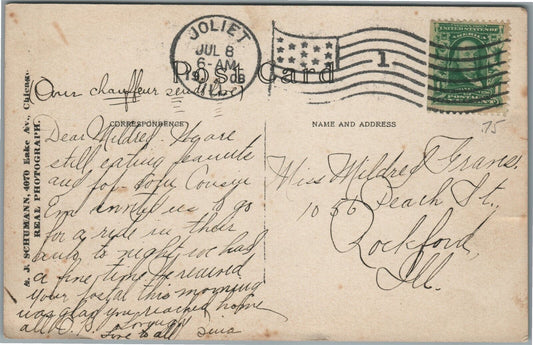 JOLIET
JUL 8
6-AM
1908
ILL.
1
UNITED STATES OF
Post Card
(Our chauffeur
CORRESPONDENCE
NAME AND ADDRESS
Dear Mildred
still eating peanuts
and for Cousin
Em us to go
for a ride in their
auto to night we had
a fine time received
your postal this morning
was glad you reached home
all O.K.
Love to all
Miss Mildred
1056 Peach St.,
Rockford,
Ill.
15
S. J. SCHUMANN, 4070 Lake Av., Chicago.
REAL PHOTOGRAPH.